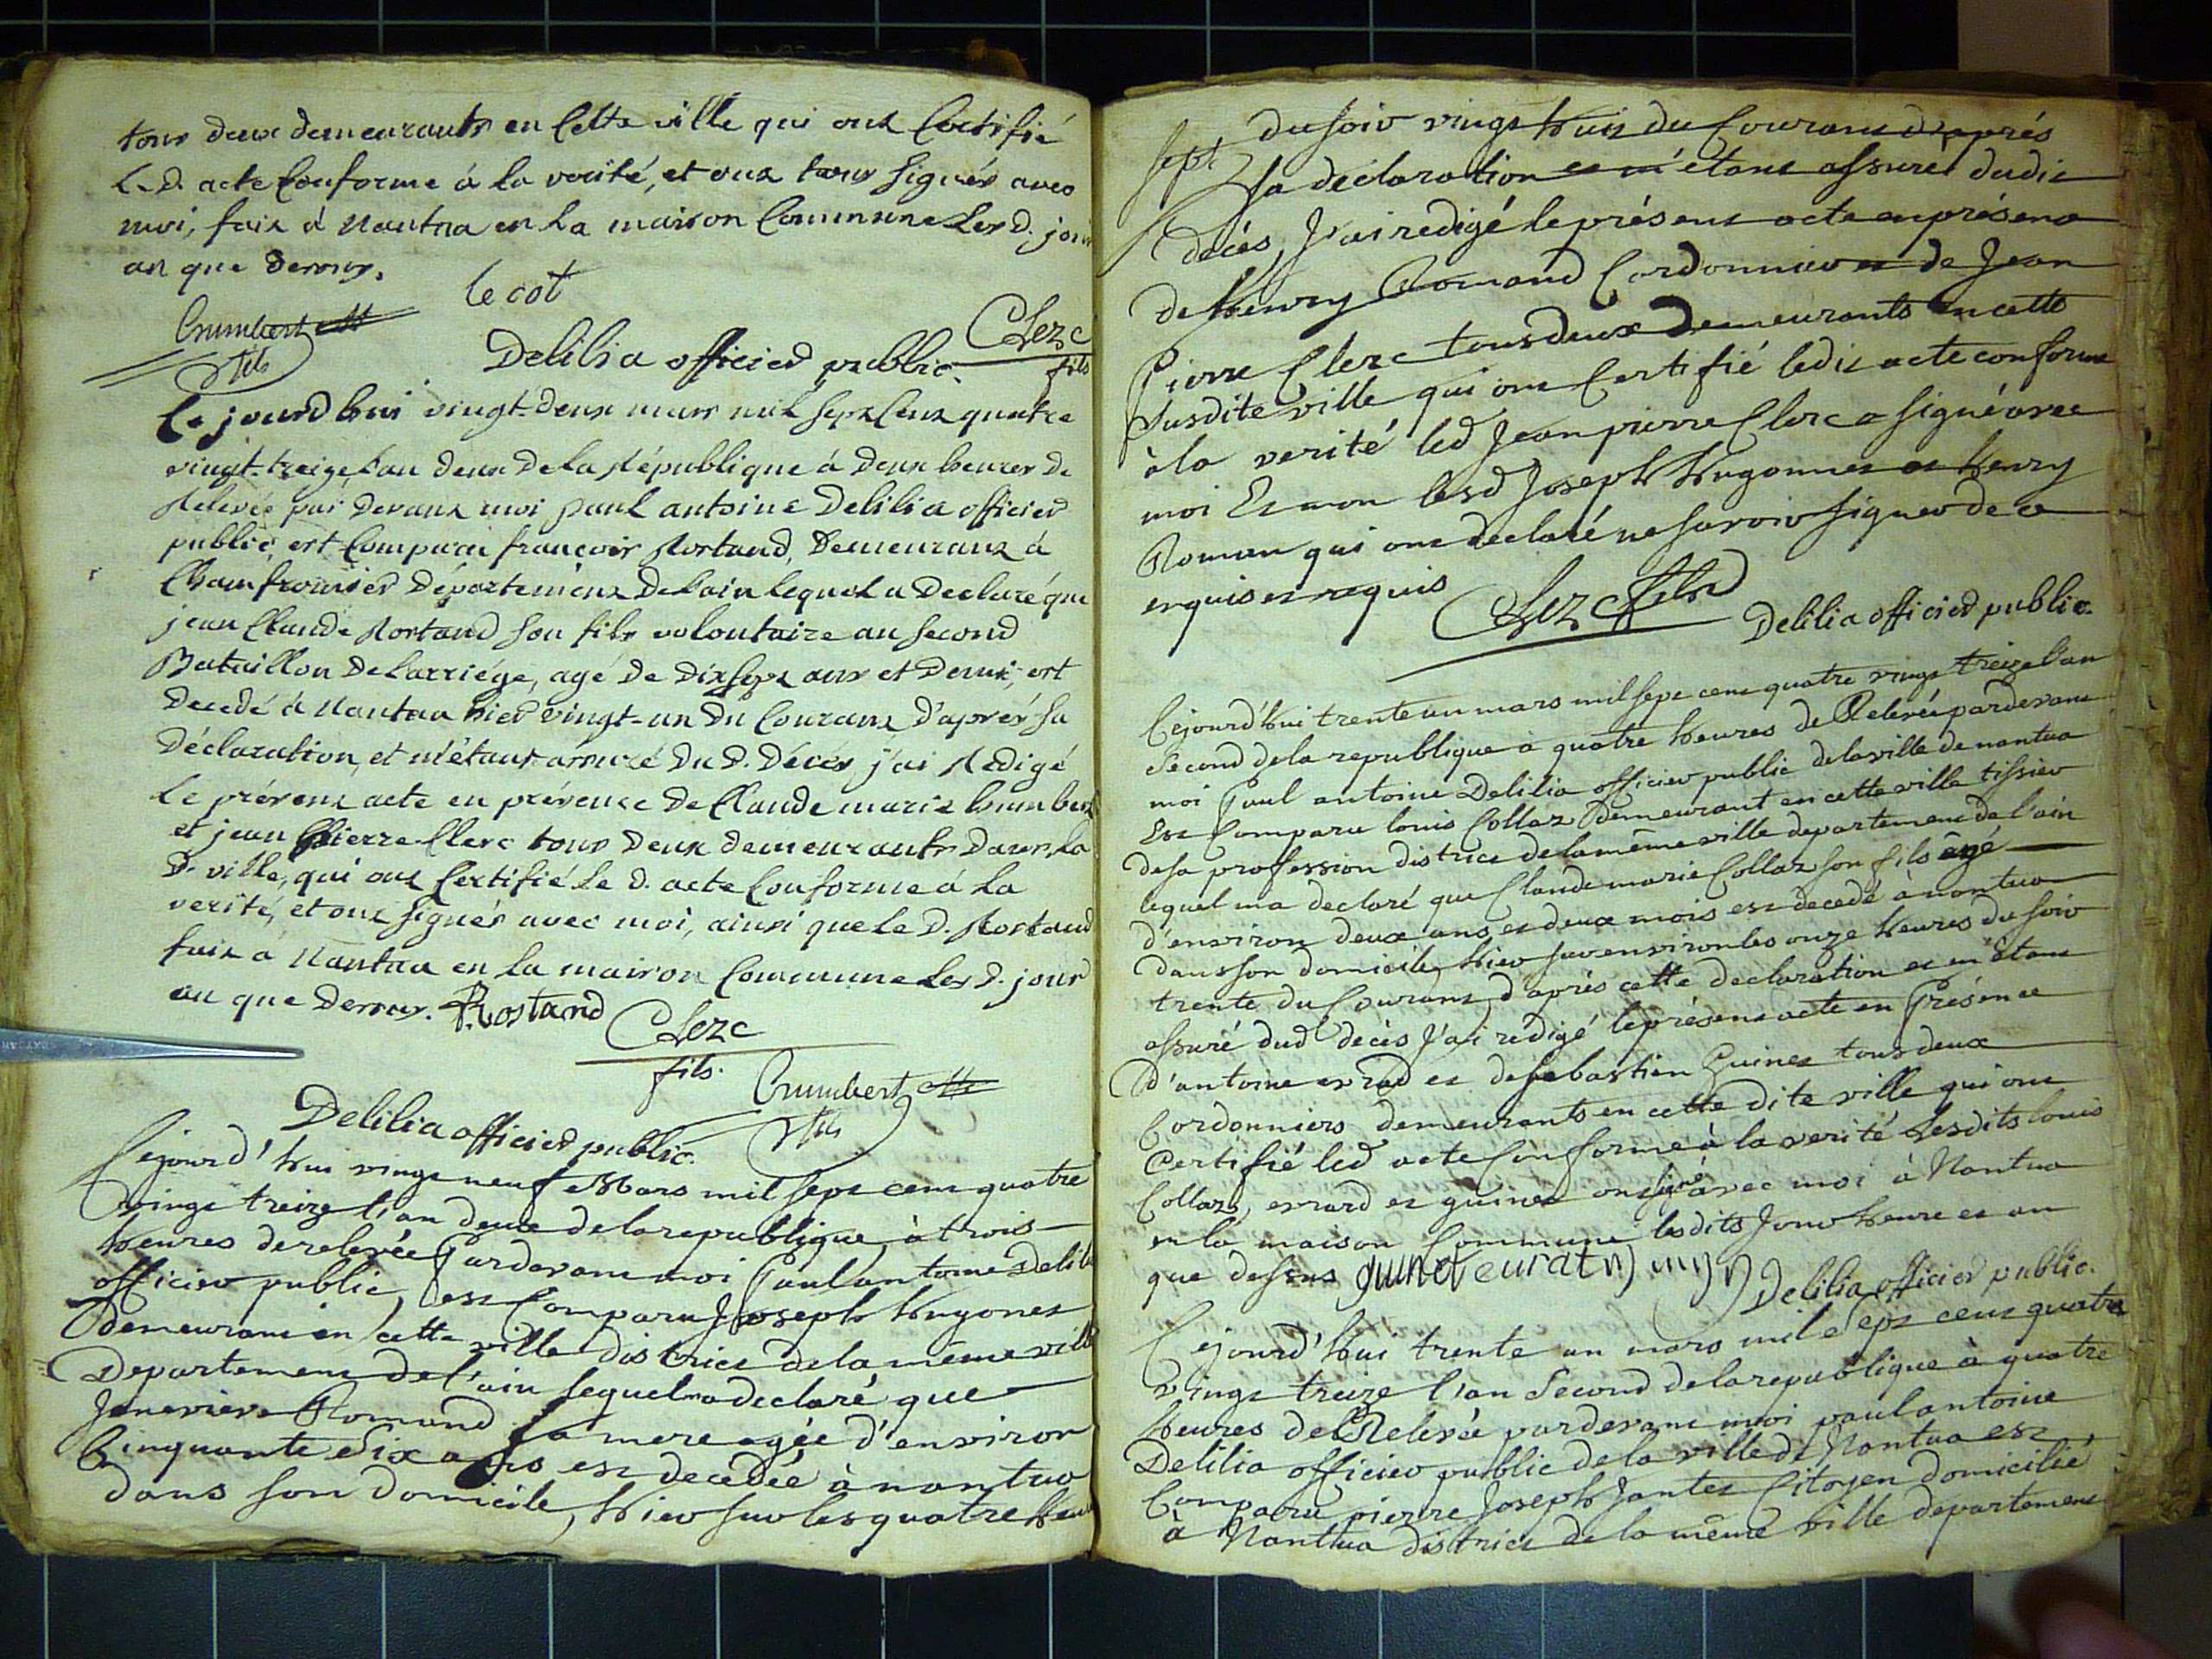 tous deux demeurants en Cette ville qui ont Certifié
L. D. acte Conforme à la verité, et ont tous signés avec
moi, fait à Nantua en La maison Commune Les d. jour
an que dessus.
le cot
humbert
fils
Clerc
fils
Delilia officier public.
Ce jourd'hui vingt-deux mars mil sept Cent quatre
vingt-treize, L'an deux De La République à Deux heures de
Relevée par devant moi paul antoine Delilia officier
public, est Comparu françois Rostand, Demeurant à
Champfromier Département De L'ain lequel a Declaré que
jean Claude Rostand son fils volontaire au second
Bataillon De L'arriége, agé De Dix sept ans et Demi, est
Decedé à Nantua hier vingt-un Du Courant D'aprés sa
Déclaration, et m'étant assuré Du D. Décés, j'ai Rédigé
Le présent acte en présence De Claude marie humbert
et jean Pierre Clerc tous Deux demeurants Dans La
D. ville, qui ont Certifié Le d. acte Conforme á La
verité, et ont signés avec moi, ainsi que Le D. Rostand
fait a Nantua en La maison Commune Les D. jour
an que Dessus. Rostand
Clerc
fils.
humbert
fils
Delilia officier public.
Cejourd'hui vingt neuf Mars mil sept cent quatre
vingt treize l'an deux de la republique, à trois
heures de relevée Pardevant moi Paul antoine Delilia
officier public, est Comparu Joseph Hugonet
demeurant en cette ville district de la même ville
Departement de l'ain lequel a declaré que
Jenevieve Romand sa mere agée d'environ
Cinquante Six ans est decedée à nantua
dans son domicile, hier sur les quatre heures
sept
du soir vingt huit du Courant d'aprés
sa declaration et m'étant assuré dudit
decès, J'ai redigé le présent acte en présence
de Henry Romand Cordonnier et de Jean
Pierre Clerc tous deux Demeurants en cette
Susdite ville qui ont Certifié ledit acte conforme
à la verité led Jean pierre Clerc a signé avec
moi Et non lesd Joseph Hugonnet et Henry
Roman qui ont declaré ne savoir signer de ce
enquis et requis
Clerc fils
Delilia officier public.
Cejourd'hui trente un mars mil sept cent quatre vingt treize l'an
Second de la republique à quatre heures de Relevée pardevant
moi Paul antoine Delilia officier public de la ville de nantua
Est Comparu louis Collaz demeurant en cette ville tissier
de sa proffession district de la même ville departement de l'ain
lequel ma declaré que Claude marie Collaz son fils agé
d'environ deux ans et deux mois est decedé à nantua
dans son domicile, hier sur environ les onze heures du soir
trente du Courant, d'aprés cette declaration et m'étant
assuré dud decès J'ai rédigé le présent acte en Présence
D'antoine evrad et de sebastien Guinet tous deux
Cordonniers demeurants en cette dite ville qui ont
Certifié led acte Conforme à la verité lesdits louis
Collaz, evrard et guinet ont signé avec moi à Nantua
en la maison Commune lesdits Jour heure et an
que dessus guinet
Delilia officier public.
Cejourd'hui trente un mars mil Sept cent quatre
vingt treize l'an Second de la republique à quatre
heures de Relevée pardevant moi paul antoine
Delilia officier public de la ville de Nantua est
Comparu pierre Joseph Jantet Citoyen domicilié
à Nantua district de la même ville departement